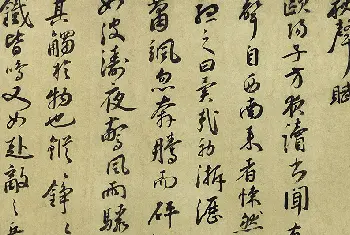 秋聲賦
歐陽子方夜讀書聞有
聲自西南來者悚然
聽之曰異哉初淅瀝
蕭颯忽奔騰而砰
如波濤夜驚風雨驟
其觸於物也鏦〻錚〻
鐵皆鳴又如赴敵之兵